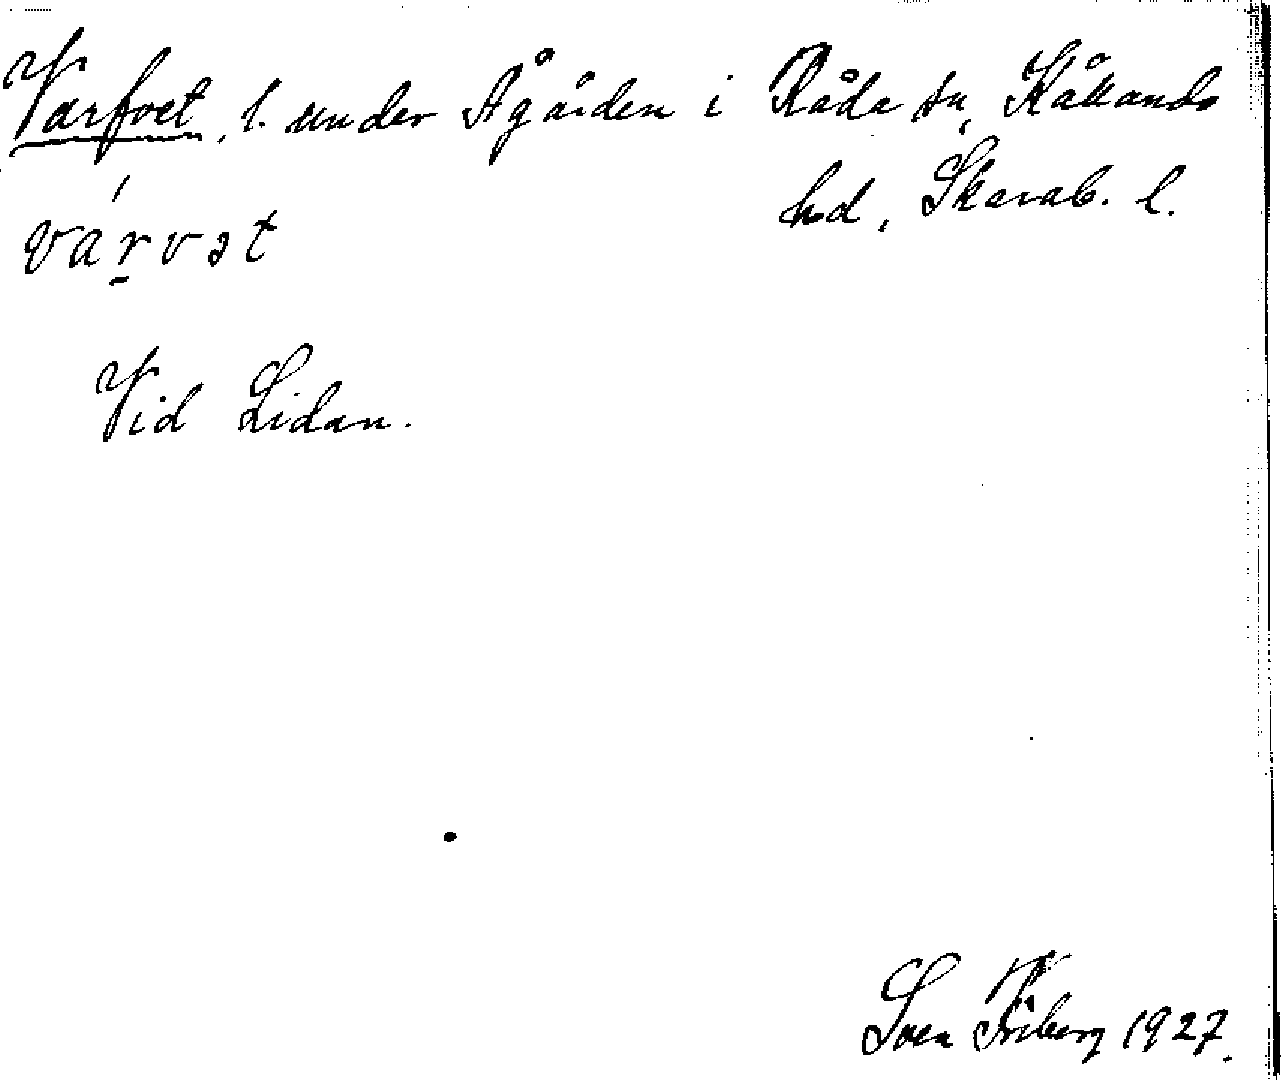 Varfvet, l. under Ågården i Råda sn, Kållands
hd, Skarab. l.
várvət
Vid Lidan.
Sven Friberg 1927.